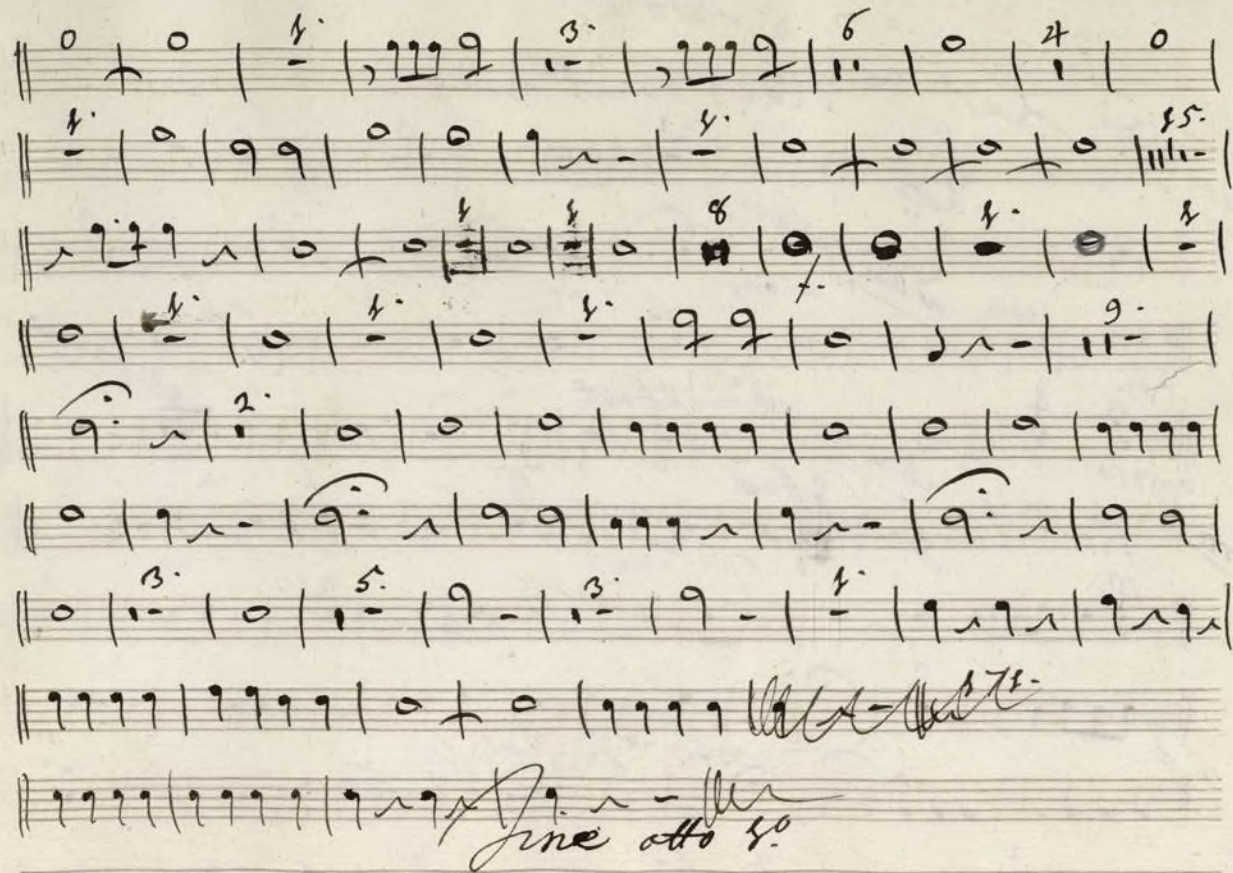 1. 3. 6 4
1. 1. 15.
1 1 8 1. 1
f.
1. 1. 1. 9.
2.
3. 5. 3. 1.
Fine atto 1.º